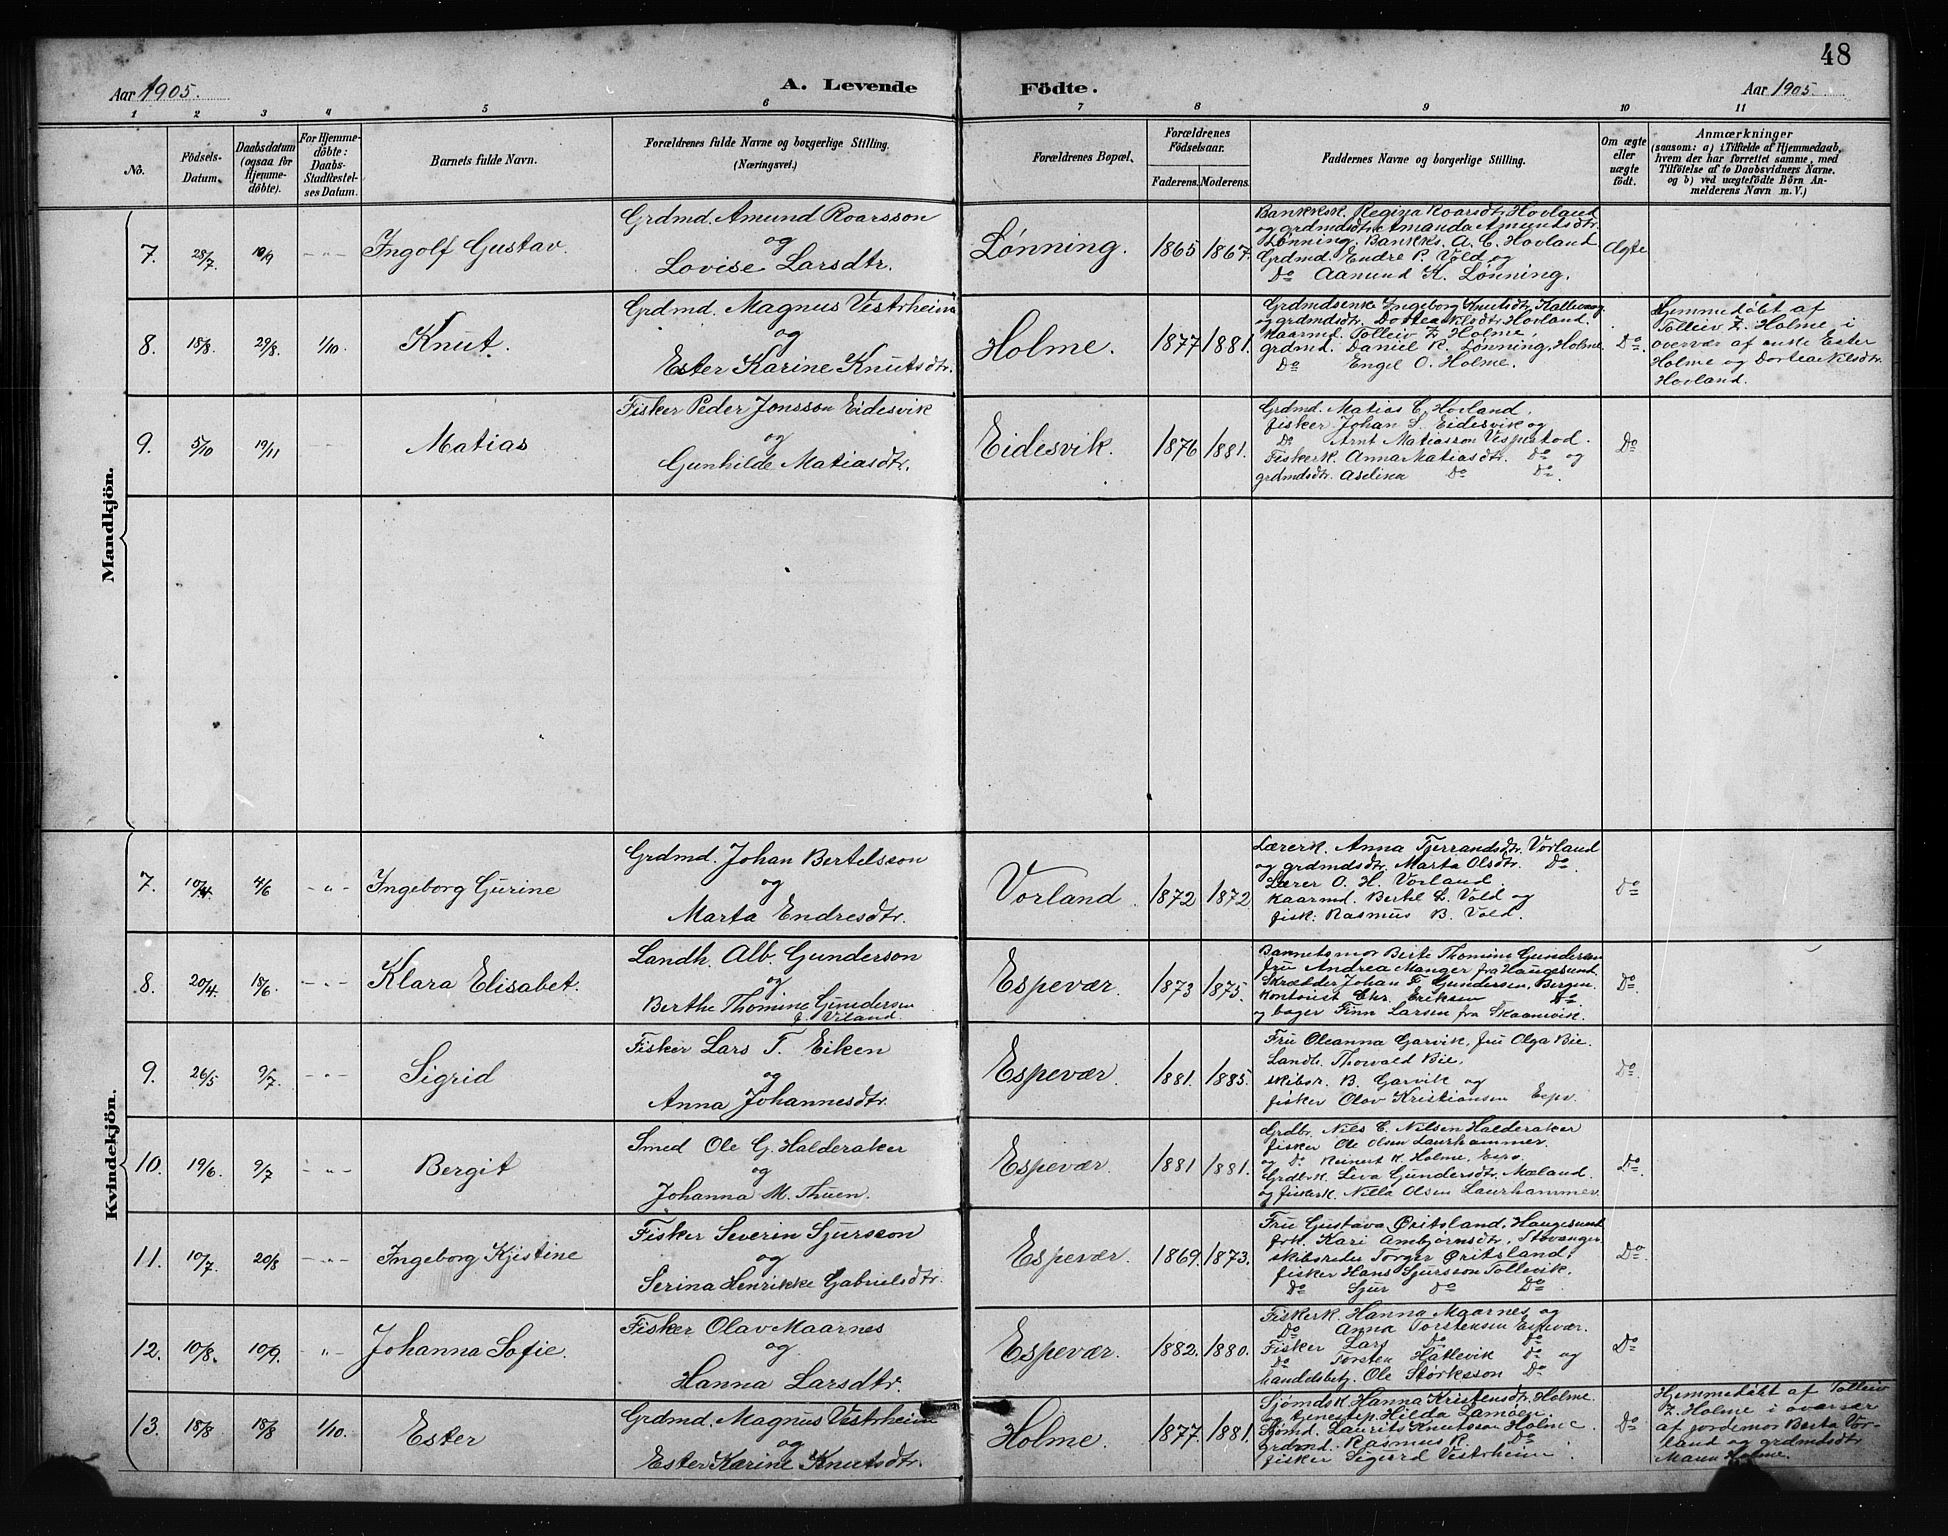 48
Aar 1905. A. Levende Födte. Aar 1905
1 2 3 4 5 6 7 8 9 10 11
No.
Födsels-Datum.
Daabsdatum (ogsaa for Hjemme-döbte).
For Hjemme-döbte: Daabs-Stadfæstel-ses Datum.
Barnets fulde Navn.
Forældrenes fulde Navne og borgerlige Stilling.
(Næringsvei.)
Forældrenes Bopæl.
Forældrenes Födselsaar.
Faderens. Moderens.
Faddernes Navne og borgerlige Stilling.
Om ægte eller uægte födt.
Anmærkninger
(saasom: a) i Tilfælde af Hjemmedaab,
hvem der har forrettet samme, med
Tilföielse af to Daabsvidners Navne,
og b) ved uægtefödte Börn An-
melderens Navn m. V.)
Mandkjön.
7. 28/7 10/9 -"- Ingolf Gustav.
Grdmd. Amund Roarsson
og
Lovise Larsdtr.
Lønning. 1865 1867.
Bankksk. Regina Roarsdtr. Hovland
og grdmdsdtr. Amanda Amundsdtr.
Lønning. Bankks. A. C. Hovland
Grdmd. Endre P. Vold og
Do Aamund K. Lønning.
Ægte
8. 18/8. 29/8. 1/10. Knut.
Grdmd. Magnus Vestrheim
og
Ester Karine Knutsdtr.
Holme. 1877 1881.
Grdmdsenke Ingeborg Knutsdtr.
og grdmdsdtr. Dortea Nlsdtr. Hovland.
Kaarmd. Tolleiv Z. Holme,
grdmd. Daniel K. Lønning, Holme.
Do Engel O. Holme.
Do.
Hjemmedøbt af
Tolleiv Z. Holme, i
overvær af enke Ester
Holme og Dortea Nlsdtr.
Hovland.
9. 5/10 19/11 Matias
Fisker Peder Jonsson Eidesvik
og
Gunhilde Matiasdtr.
Eidesvik. 1876 1881.
Grdmd. Matias C. Hovland,
fisker Johan S. Eidesvik og
Do Arnt Matiasson Vespestad.
Fiskerk. Anna Matiasdtr. Do og
grdmdsdtr. Aselina Do Do.
Do
Kvindekjön.
7. 10/4. 4/6 -"- Ingeborg Gurine
Grdmd. Johan Bertelsson
og
Marta Endresdtr.
Vorland. 1872 1872
Lærerk. Anna Tjerrandsdtr. Vorland
og grdmdsdtr. Marta Olsdtr. Do.
Lærer O. H. Vorland,
Kaarmd. Bertil L. Vold og
fisk. Rasmus B. Vold.
Do
8. 20/4. 18/6. -"- Klara Elisabet.
Landh. Alb. Gunderson
og
Berthe Thomine Gundersen
f. Viland.
Espevær. 1873 1875.
Barnets mor Birte Thomine Gundersen
fru Andrea Manger fra Haugesund.
Skrædder Johan F. Gundersen, Bergen.
Kontorist Chr. Eriksen Do.
og bager Finn Larsen fra Skaanevik.
Do.
9. 26/5 9/7. -"- Sigrid
Fisker Lars T. Eiken
og
Anna Johannesdtr.
Espevær. 1881. 1885.
Fru Oleanna Garvik, fru Olga Bie.
Landh. Thorvald Bie,
skibsr. B. Garvik og
fisker Olav Kristiansen Espv.
Do.
10. 19/6. 9/7 -"- Bergit
Smed Ole G. Halderaker
og
Johanna M. Thuen.
Espevær. 1881 1881.
Grdbr. Nils C. Nilsen Halderaker
fisker Ole Olsen Laurhammer.
og Do. Reinert K. Holme,
Grdbrk. Liva Gundersdtr. Mæland.
og fiskerk. Nilla Olsen Laurhammer.
Do.
11. 10/7. 20/8 -"- Ingeborg Kjistine
Fisker Severin Sjursson
og
Serina Henrikke Gabrielsdtr.
Espevær. 1869. 1873.
Fru Gustava Øritsland, Haugesund
frk. Kari Ambjørnsdtr. Stavanger.
skibsreder Torger Øritsland,
fisker Hans Sjursson Tollevik.
Do Sjur Do Do.
Do.
12. 10/8. 10/9. -"- Johanna Sofie.
Fisker Olav Maarnes
og
Hanna Larsdtr.
Espevær. 1882. 1880.
Fiskerk. Hanna Maarnes, og
Do Anna Torstensen Espevær.
Fisker Lars Do Do
Do Torsten Hatlevik Do og
handelsbetj. Ole Størksson Do
Do
13. 18/8 18/8 1/10. Ester
Grdmd. Magnus Vestrheim
og
Ester Karine Knutsdtr.
Holme. 1877. 1881.
Sjømdsk. Hanna Kristensdtr. Holme
og tjenestep. Hilda Lamøen
Sjømd. Laurits Knutsson Holme
grdmd. Rasmus K. Do
fisker Sigurd Vestrheim.
Do
Hjemmedøbt af Tolleiv
Z. Holme i overvær
af jordemor Berta Vor-
land og grdmdsdtr.
Holme.